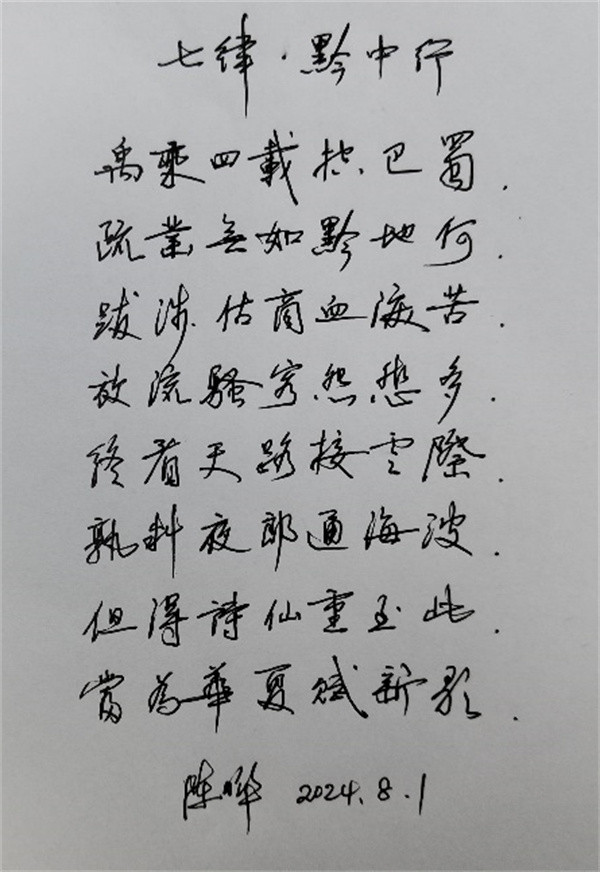 七律·黔中行
禹乘四載控巴蜀.
疏業無如黔地何.
跋涉估商血淚苦.
放流騷客怨愁多.
終看天路接雲際.
孰料夜郎通海波.
但得詩仙重至此.
當為華夏賦新歌.
陳曄 2024.8.1